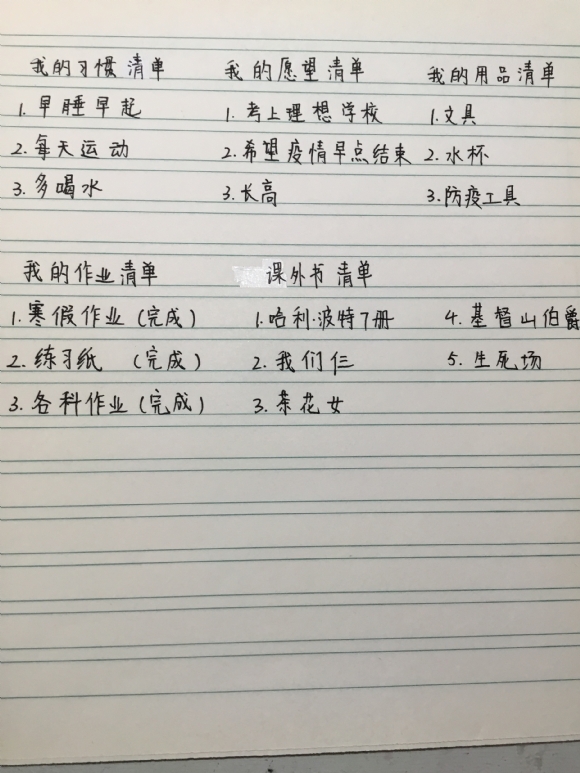 我的习惯清单 我的愿望清单 我的用品清单
1.早睡早起 1.考上理想学校 1.文具
2.每天运动 2.希望疫情早点结束 2.水杯
3.多喝水 3.长高 3.防疫工具
我的作业清单 课外书清单
1.寒假作业(完成) 1.哈利·波特7册 4.基督山伯爵
2.练习纸 (完成) 2.我们仨 5.生死场
3.各科作业(完成) 3.茶花女